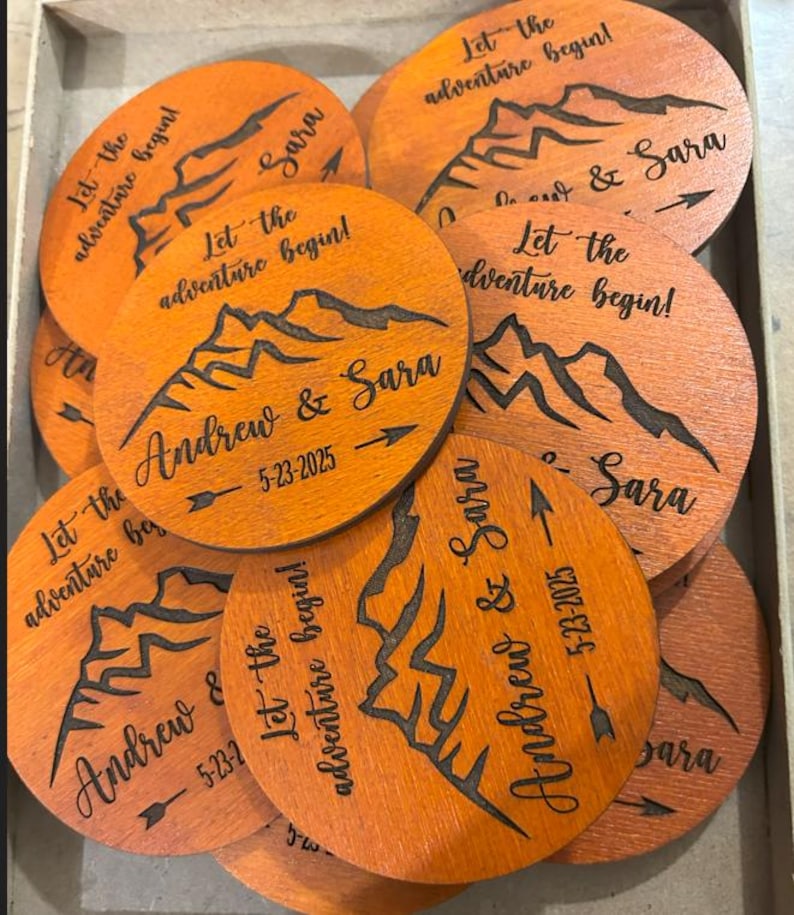 Let the
adventure begin!
Sara
Let the
adventure begin!
Andrew & Sara
Let the
adventure begin!
Andrew & Sara
5-23-2025
Let the
adventure begin!
& Sara
An
Let the
adventure beg
Andrew &
5-23-2
Let the
adventure begin!
Andrew & Sara
5-23-2025
Sara
5-23-2